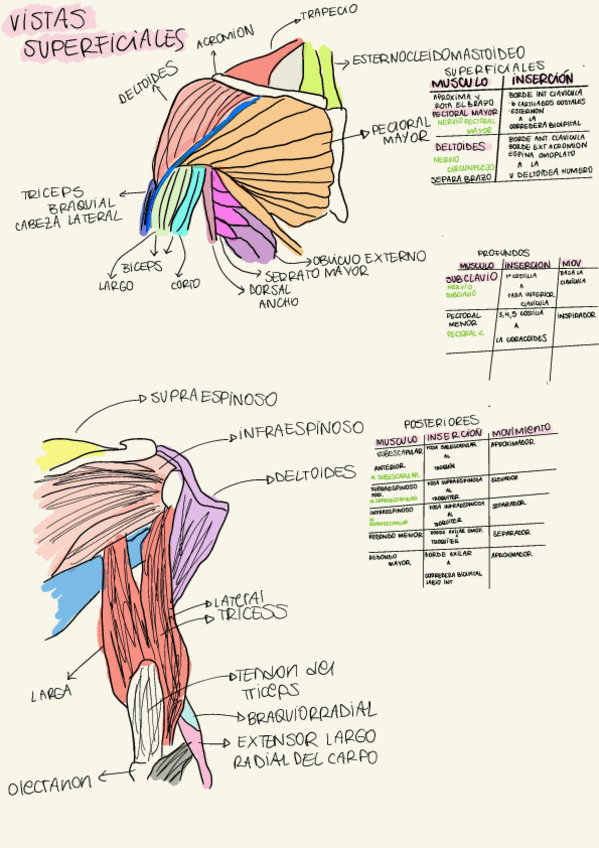 VISTAS
SUPERFICIALES
TRAPECIO
ACROMION
DELTOIDES
ESTERNOCLEIDOMASTOÍDEO
PECTORAL
MAYOR
TRICEPS
BRAQUIAL
CABEZA LATERAL
BÍCEPS
LARGO
CORTO
OBLICUO EXTERNO
SERRATO MAYOR
DORSAL
ANCHO
SUPERFICIALES
MUSCULO
INSERCIÓN
APRÓXIMA Y
ROTA EL BRAZO
PECTORAL MAYOR
NERVIO PECTORAL
MAYOR
BORDE INT CLAVICULA
6 CARTILAGOS COSTALES
ESTERNON
A LA
CORREDERA BICIPITAL
DELTOIDES
NERVIO
CIRCUNFLEJO
SEPARA BRAZO
BORDE ANT. CLAVICULA
BORDE EXT ACROMION
ESPINA OMOPLATO
A LA
V DELTOIDEA HUMERO
PROFUNDOS
MUSCULO
INSERCION
MOV
SUBCLAVIO
NERVIO
SUBCLAVIO
1ª COSTILLA
A
CARA INFERIOR
CLAVICULA
BAJA LA
CLAVÍCULA
PECTORAL
MENOR
PECTORAL <
3,4,5 COSTILLA
A
LA CORACOIDES
INSPIRADOR
SUPRAESPINOSO
INFRAESPINOSO
DELTOIDES
LATERAL
TRICESS
LARGA
TENDON del
TRICEPS
BRAQUIORRADIAL
EXTENSOR LARGO
RADIAL DEL CARPO
Olectanon
POSTERIORES
MUSCULO
INSERCIÓN
MOVIMIENTO
SUBESCAPULAR
ANTERIOR
N SUBESCAPULAR
FOSA SUBESCAPULAR
AL
TROQUIN
APROXIMADOR
SUPRAESPINOSO
N SUPRAESCAPULAR
FOSA SUPRAESPINOSA
AL
TROQUITER
ELEVADOR
INFRAESPINOSO
N
SUPRAESCAPULAR
FOSA INFRAESPINOSA
AL
TROQUITER
SEPARADOR
REDONDO MENOR
BORDE AXILAR OMOP.
TROQUÍTER
SEPARADOR
REDONDO
MAYOR
BORDE AXILAR
A
CORREDERA BICIPITAL
LABIO INT
APROXIMADOR